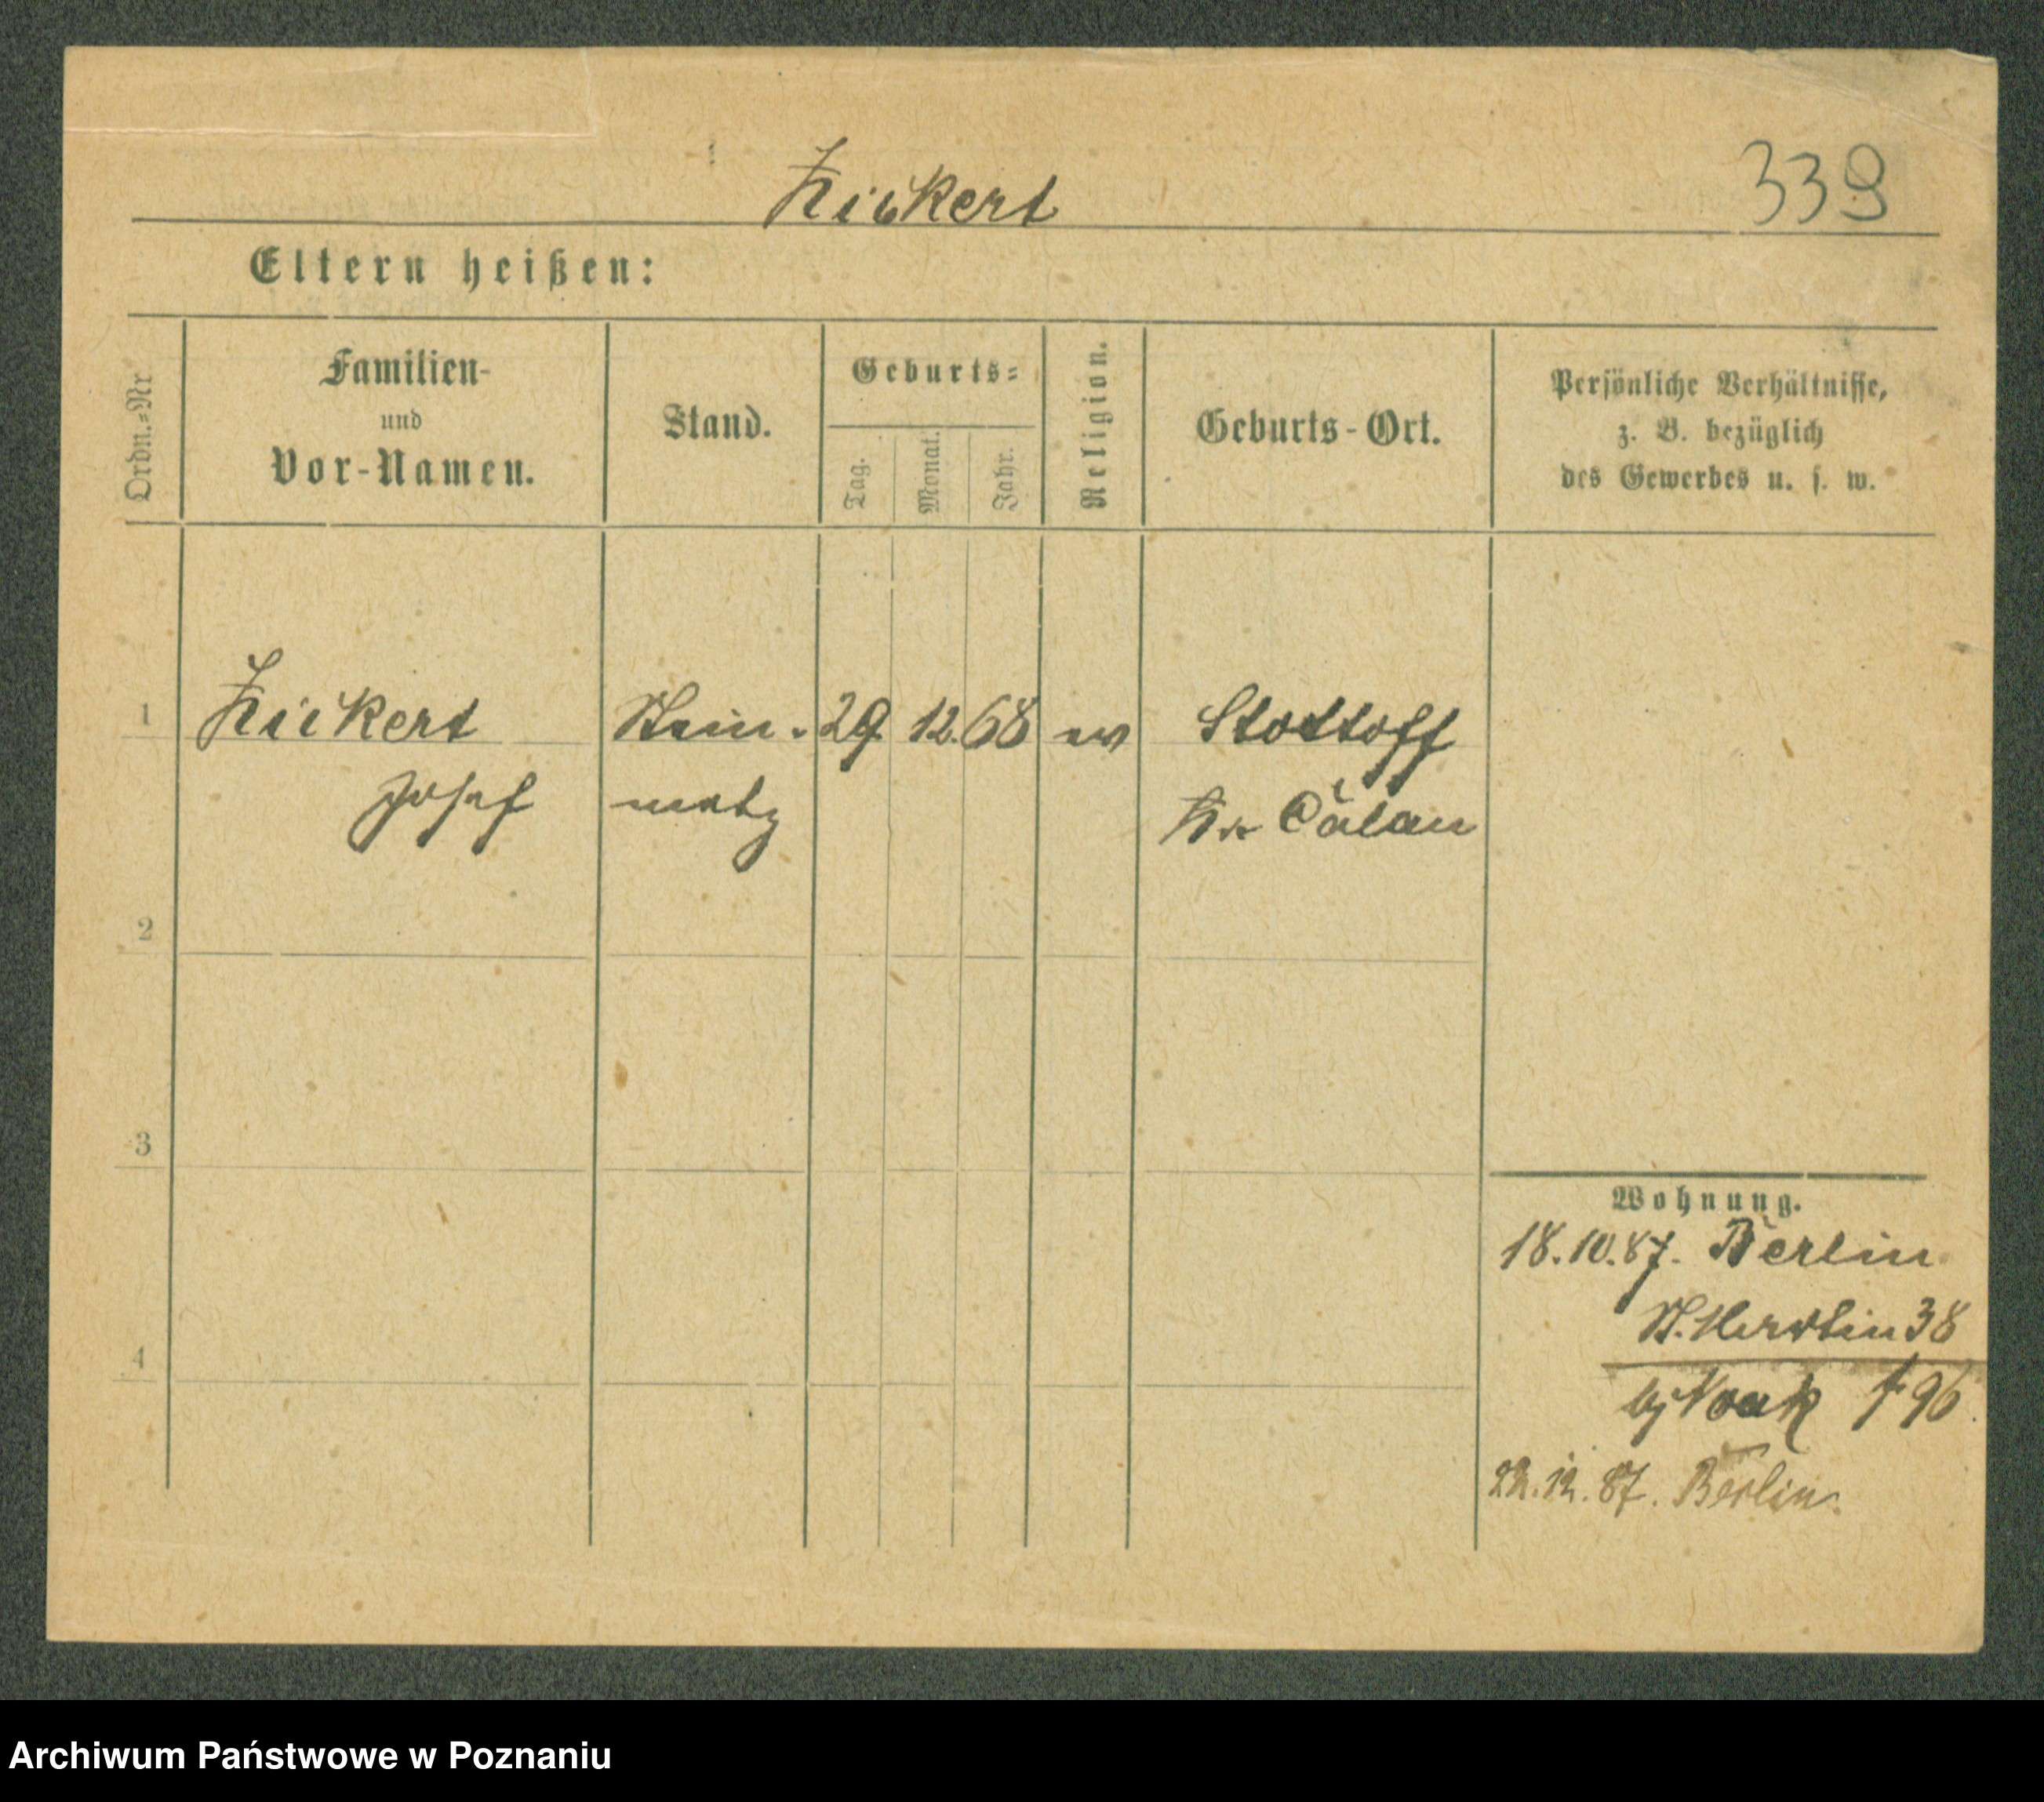 Zickert
339
Eltern heißen:
Ordn.=Nr
Familien-
und
Vor-Namen.
Stand.
Geburts=
Tag.
Monat.
Jahr.
Religion.
Geburts-Ort.
Persönliche Verhältnisse,
z. B. bezüglich
des Gewerbes u. s. w.
1
Zickert
Josef
Stein-
metz
29. 12. 68
ev
Stottoff
Kr Calau
2
3
4
Wohnung.
18.10.87. Berlin
St. Martin 38
bj Noak f 96.
22.12.87. Berlin.
Archiwum Państwowe w Poznaniu